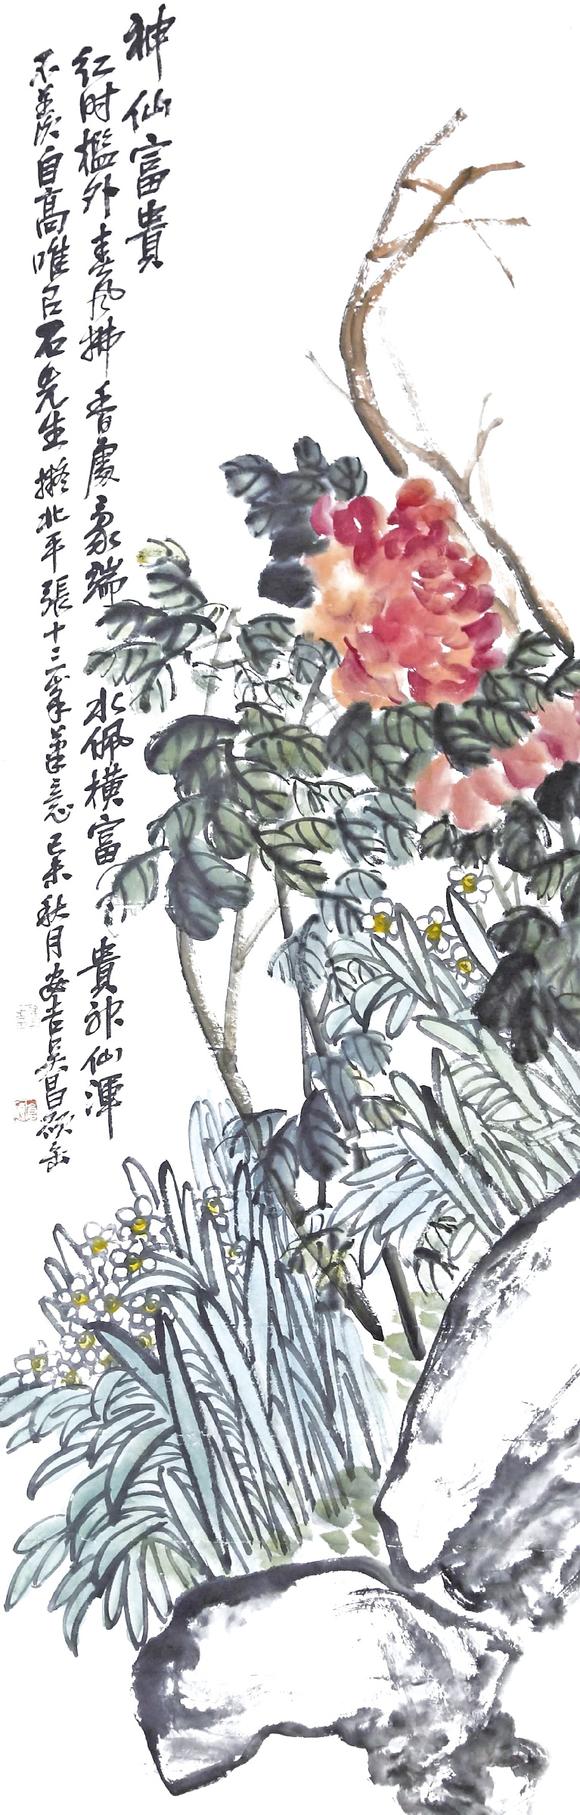 神仙富貴
红时槛外春风拂香處豪端水佩横富貴神仙渾
不羡自高唯有石先生擬北平張十三峯筆意己未秋月安吉吳昌碩缶